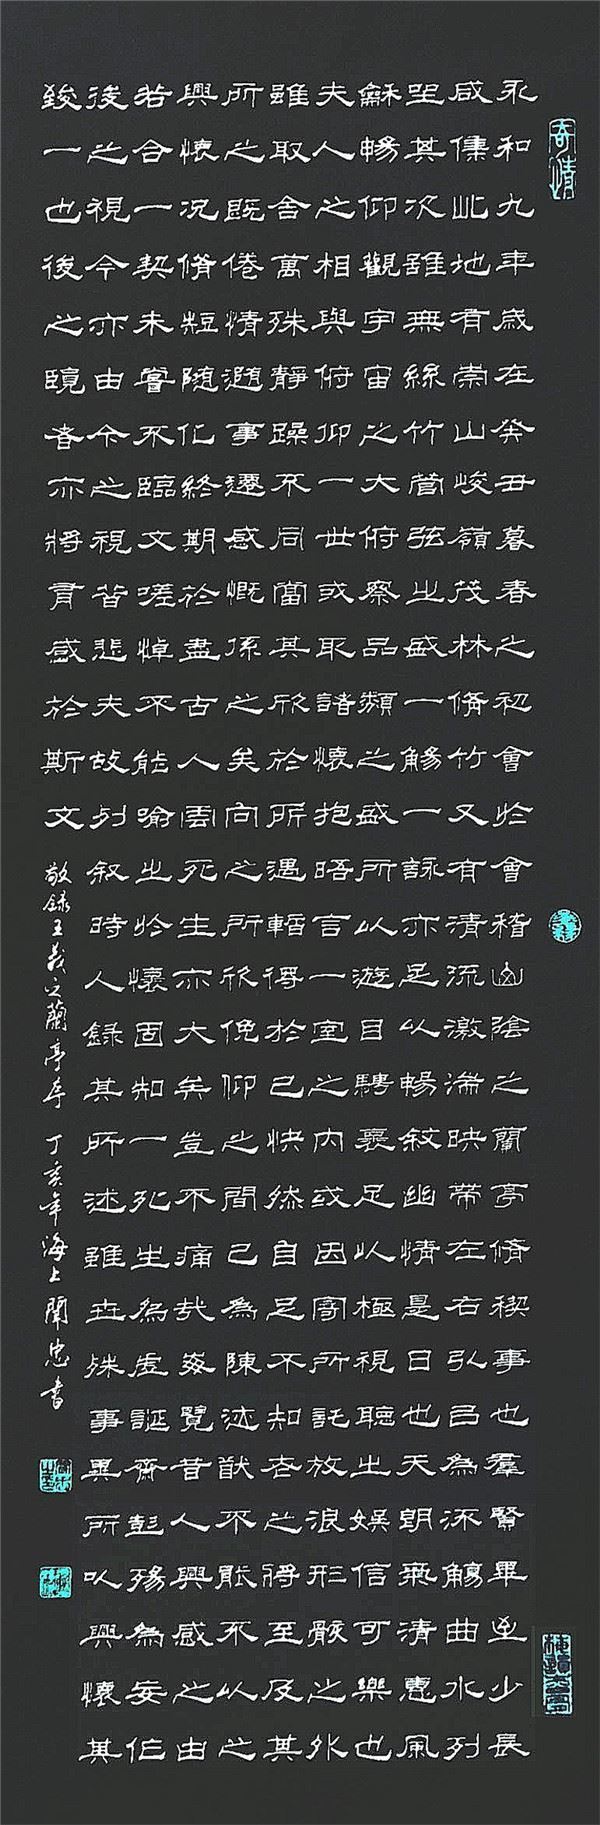 奇情
永和九年歲在癸丑暮春之初會於會稽山陰之蘭亭脩稧事也羣賢畢至少長
咸集此地有崇山峻嶺茂林脩竹又有清流激湍映帶左右引㠯為流觴曲水列
坐其次雖無絲竹管弦之盛一觴一詠亦足以暢敘幽情是日也天朗氣清惠風
龢暢仰觀宇宙之大俯察品類之盛所以遊目騁褱足以極視聽之娛信可樂也
夫人之相與俯仰一世或取諸懷抱晤言一室之內或因寄所託放浪形骸之外
雖取舍萬殊靜躁不同當其欣於所遇暫得於己快然自足不知老之將至及其
所之既倦情隨事遷感慨係之矣向之所欣俛仰之間已為陳迹猷不能不以之
興懷況脩短隨化終期於盡古人雲死生亦大矣豈不痛哉每覽昔人興感之由
若合一契未嘗不臨文嗟悼不能喻之於懷固知一死生為虛誕齊彭殤為妄作
後之視今亦由今之視昔悲夫故列敘時人錄其所述雖世殊事異所以興懷其
致一也後之覽者亦將有感於斯文
敬錄王羲之蘭亭序 丁亥年海上聞忠書